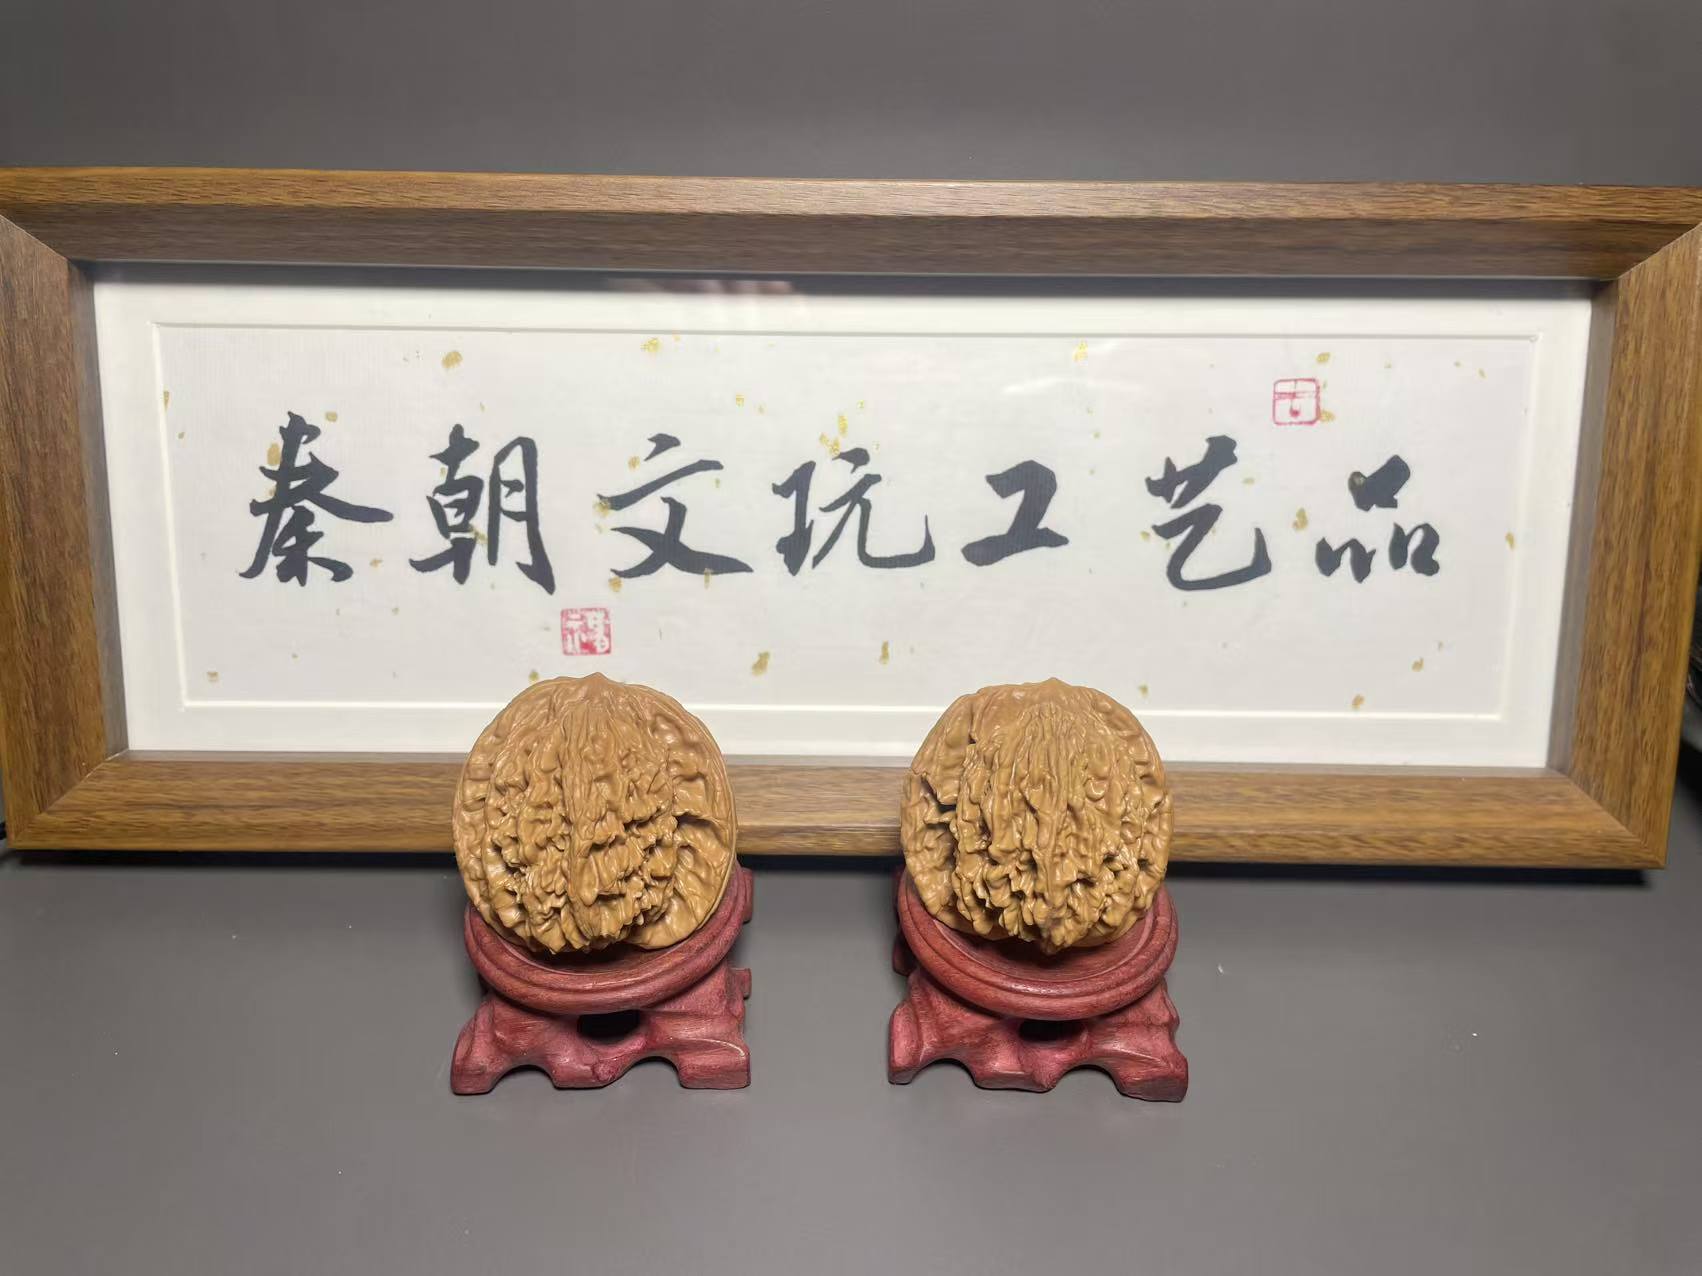 秦朝文玩工艺品